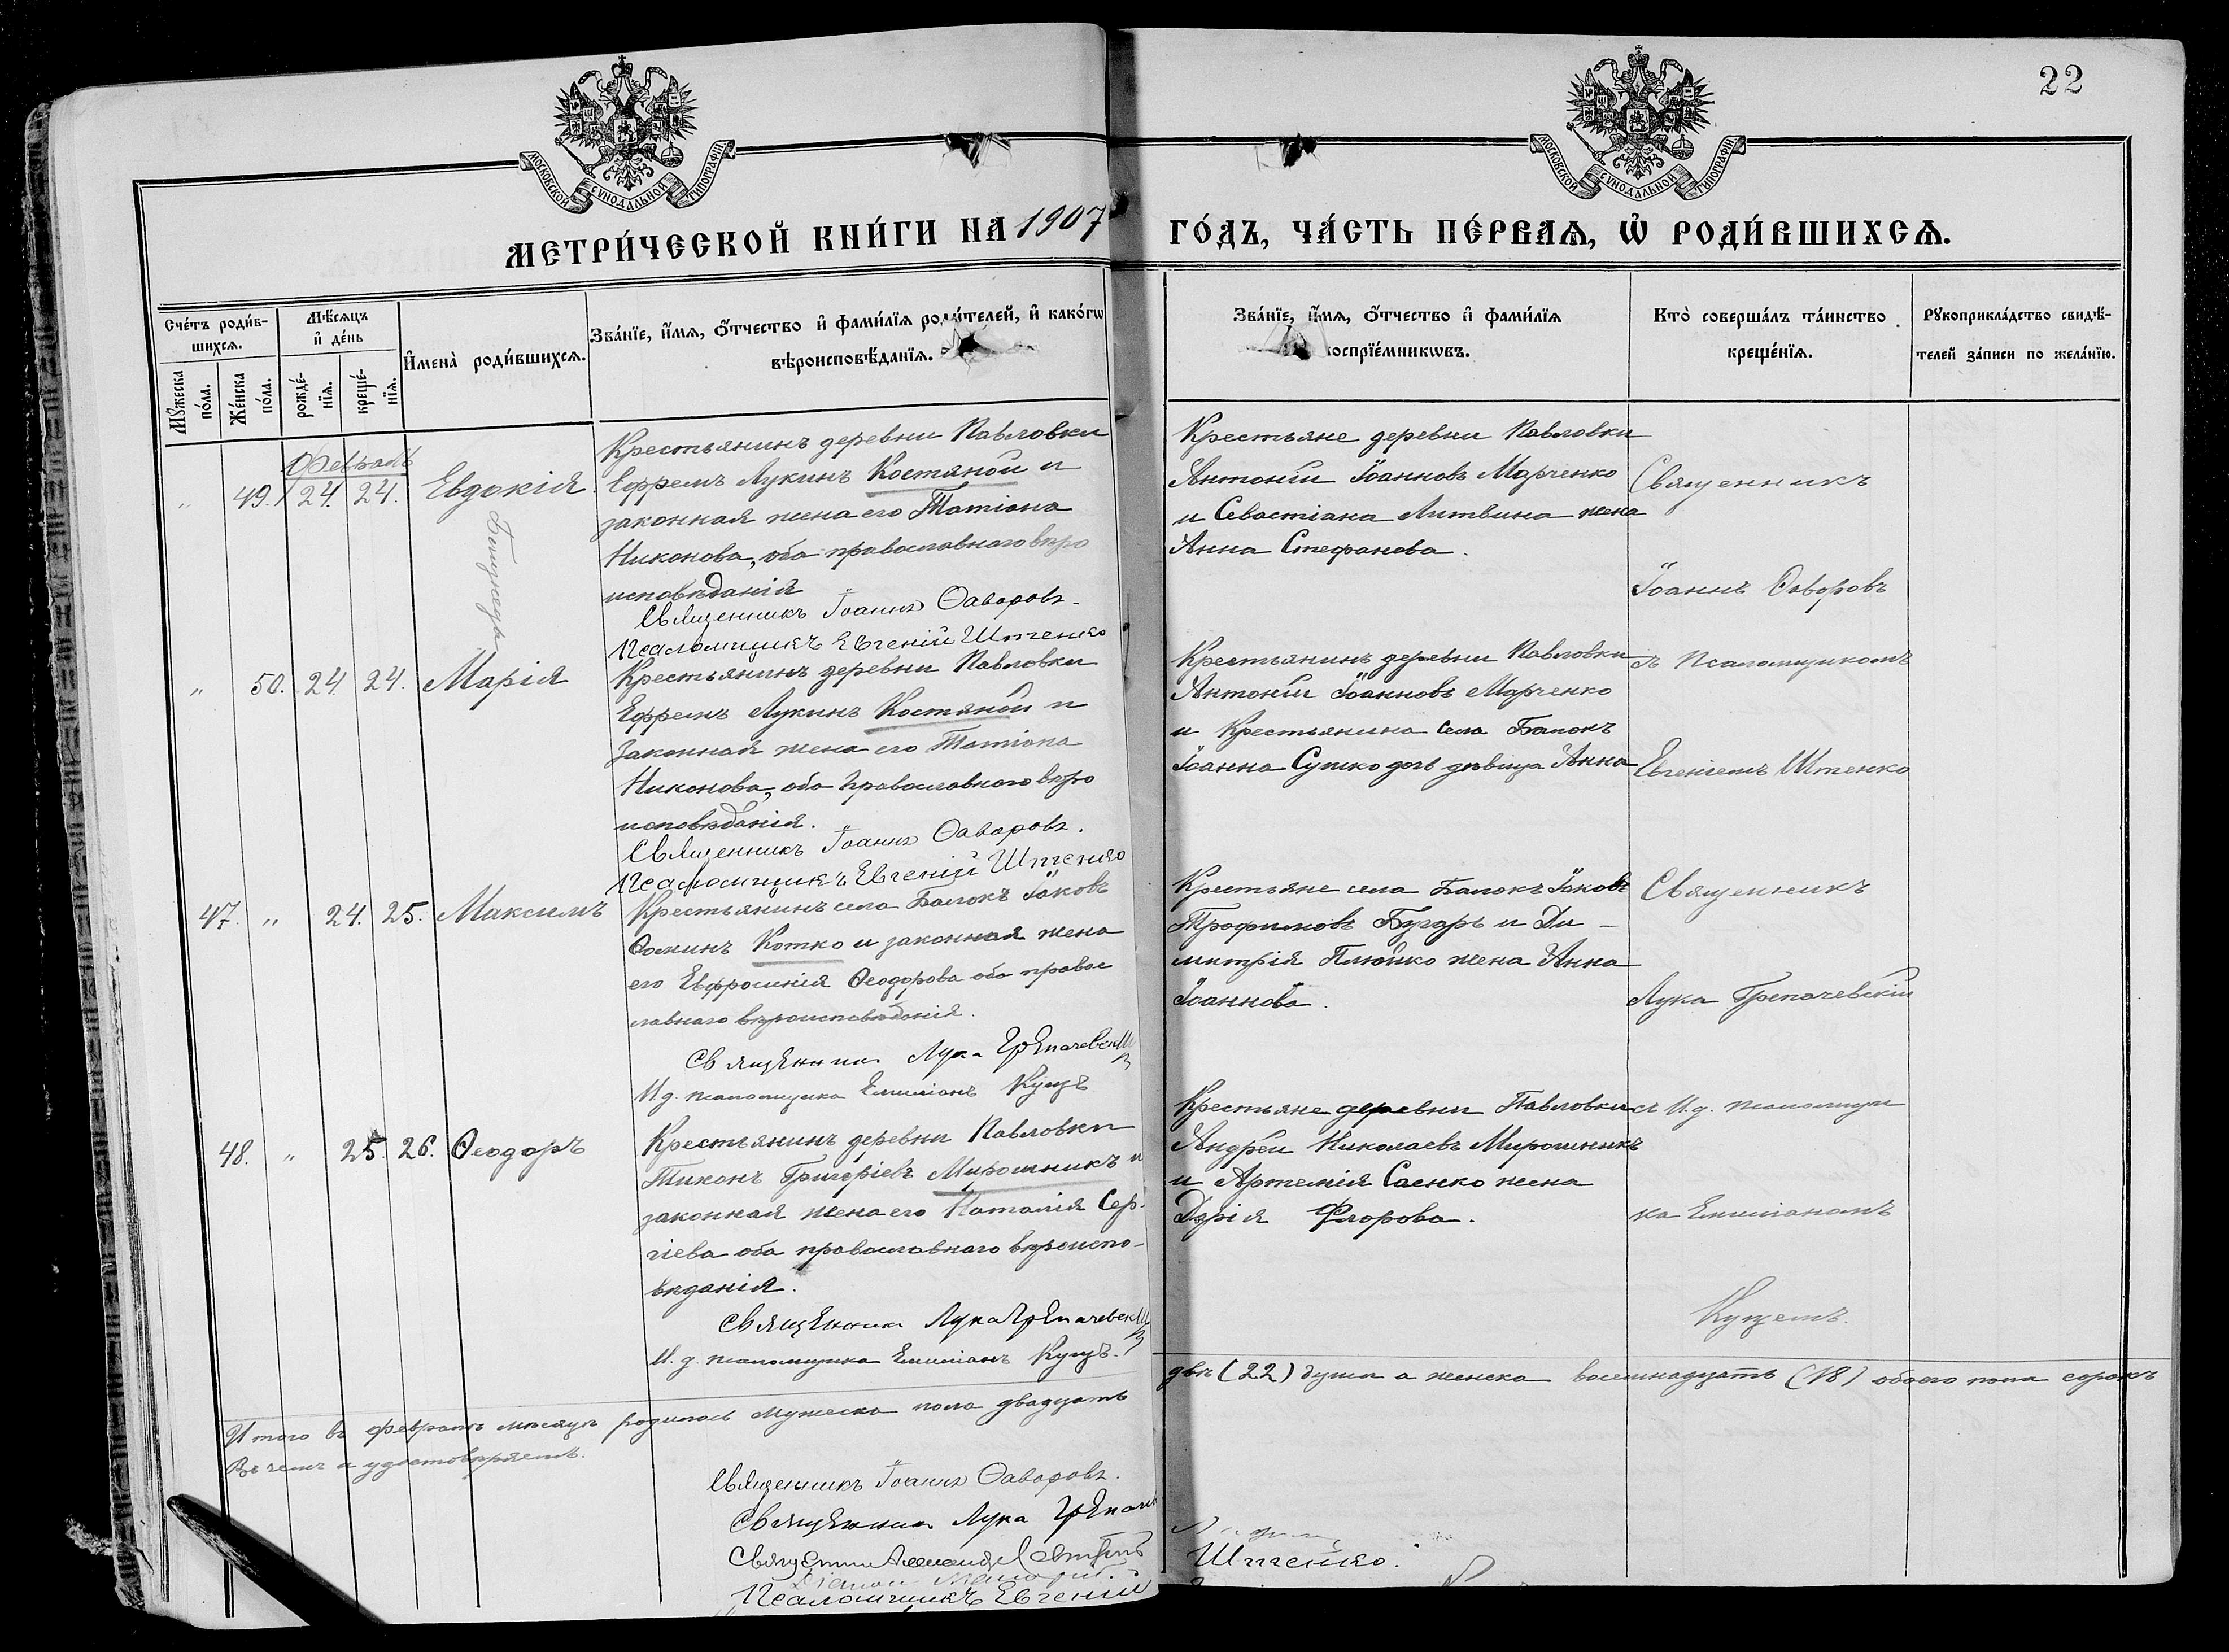 22
МОСКОВСКОЙ СѴНОДАЛЬНОЙ ТИПОГРАФІИ
МОСКОВСКОЙ СѴНОДАЛЬНОЙ ТИПОГРАФІИ
МЕТРИ́ЧЕСКОЙ КНИ́ГИ НА 1907 ГО́ДЪ, ЧА́СТЬ ПЕ́РВАѦ, Ѡ҆ РОДИ́ВШИХСѦ.
Сче́тъ роди́в-
шихсѧ.
Мꙋ́жеска
по́ла.
Же́нска
по́ла.
Мѣ́сѧцъ
и҆ де́нь
рожде́-
нїѧ.
креще́-
нїѧ.
И҆мена̀ роди́вшихсѧ.
Зва́нїе, и҆́мѧ, ѻ҆́тчество и҆ фами́лїѧ роди́телей, и҆ како́гѡ
вѣроисповѣ́данїѧ.
Зва́нїе, и҆́мѧ, ѻ҆́тчество и҆ фами́лїѧ
оспрїе́мникѡвъ.
Кто̀ соверша́лъ та́инство
креще́нїѧ.
Рꙋкоприкла́дство свидѣ́-
телей за́писи по жела́нїю.
Февраль
„ 49. 24. 24. Евдокія.
Близнецы
Крестьянинъ деревни Павловки
Ефремъ Лукинъ Костяной и
законная жена его Татіана
Никонова, оба православнаго вѣро
исповѣданія
Священникъ Іоаннъ Ѳаворовъ.
Псаломщикъ Евгеній Штенко
Крестьяне деревни Павловки
Антоній Іоанновъ Марченко
и Севастіана Литвина жена
Анна Стефанова.
Священникъ
Іоаннъ Ѳаворовъ
„ 50. 24. 24. Марія
Крестьянинъ деревни Павловки
Ефремъ Лукинъ Костяной и
законная жена его Татіана
Никонова, оба православнаго вѣро
исповѣданія.
Священникъ Іоаннъ Ѳаворовъ.
Псаломщикъ Евгеній Штенко
Крестьянинъ деревни Павловки
Антоній Іоанновъ Марченко
и Крестьянина села Балокъ
Іоанна Сушко дочь дѣвица Анна
съ Псаломщикомъ
Евгеніемъ Штенко
47. „ 24. 25. Максимъ
Крестьянинъ села Балокъ Іаковъ
Ѳоминъ Котко и законная жена
его Евфросинія Ѳеодорова оба правос
лавнаго вѣроисповѣданія.
Священникъ Лука Грепачевскій
И. д. псаломщика Емиліанъ Куцъ
Крестьяне села Балокъ Іаковъ
Трофимовъ Бугаръ и Ди-
митрія Плюйко жена Анна
Іоаннова.
Священникъ
Лука Грепачевскій
48. „ 25. 26. Ѳеодоръ
Крестьянинъ деревни Павловки
Тихонъ Григоріевъ Мирошникъ и
законная жена его Наталія Сер-
гіева оба православнаго вѣроиспо-
вѣданія.
Священникъ Лука Грепачевскій
И. д. псаломщика Емиліанъ Куцъ.
Крестьяне деревни Павловки
Андрей Николаевъ Мирошникъ
и Артемія Саенко жена
Дарія Флорова.
съ И. д. псаломщи
ка Емиліаномъ
Куцемъ.
Итого въ февралѣ мѣсяцѣ родилось мужеска пола двадцать
двѣ (22) души а женска восемнадцать (18) обоего пола сорокъ
Въ чемъ и удостовѣряемъ.
Священникъ Іоаннъ Ѳаворовъ.
Священникъ Лука
Священникъ Александръ
Псаломщикъ Евгеній
Штенко.